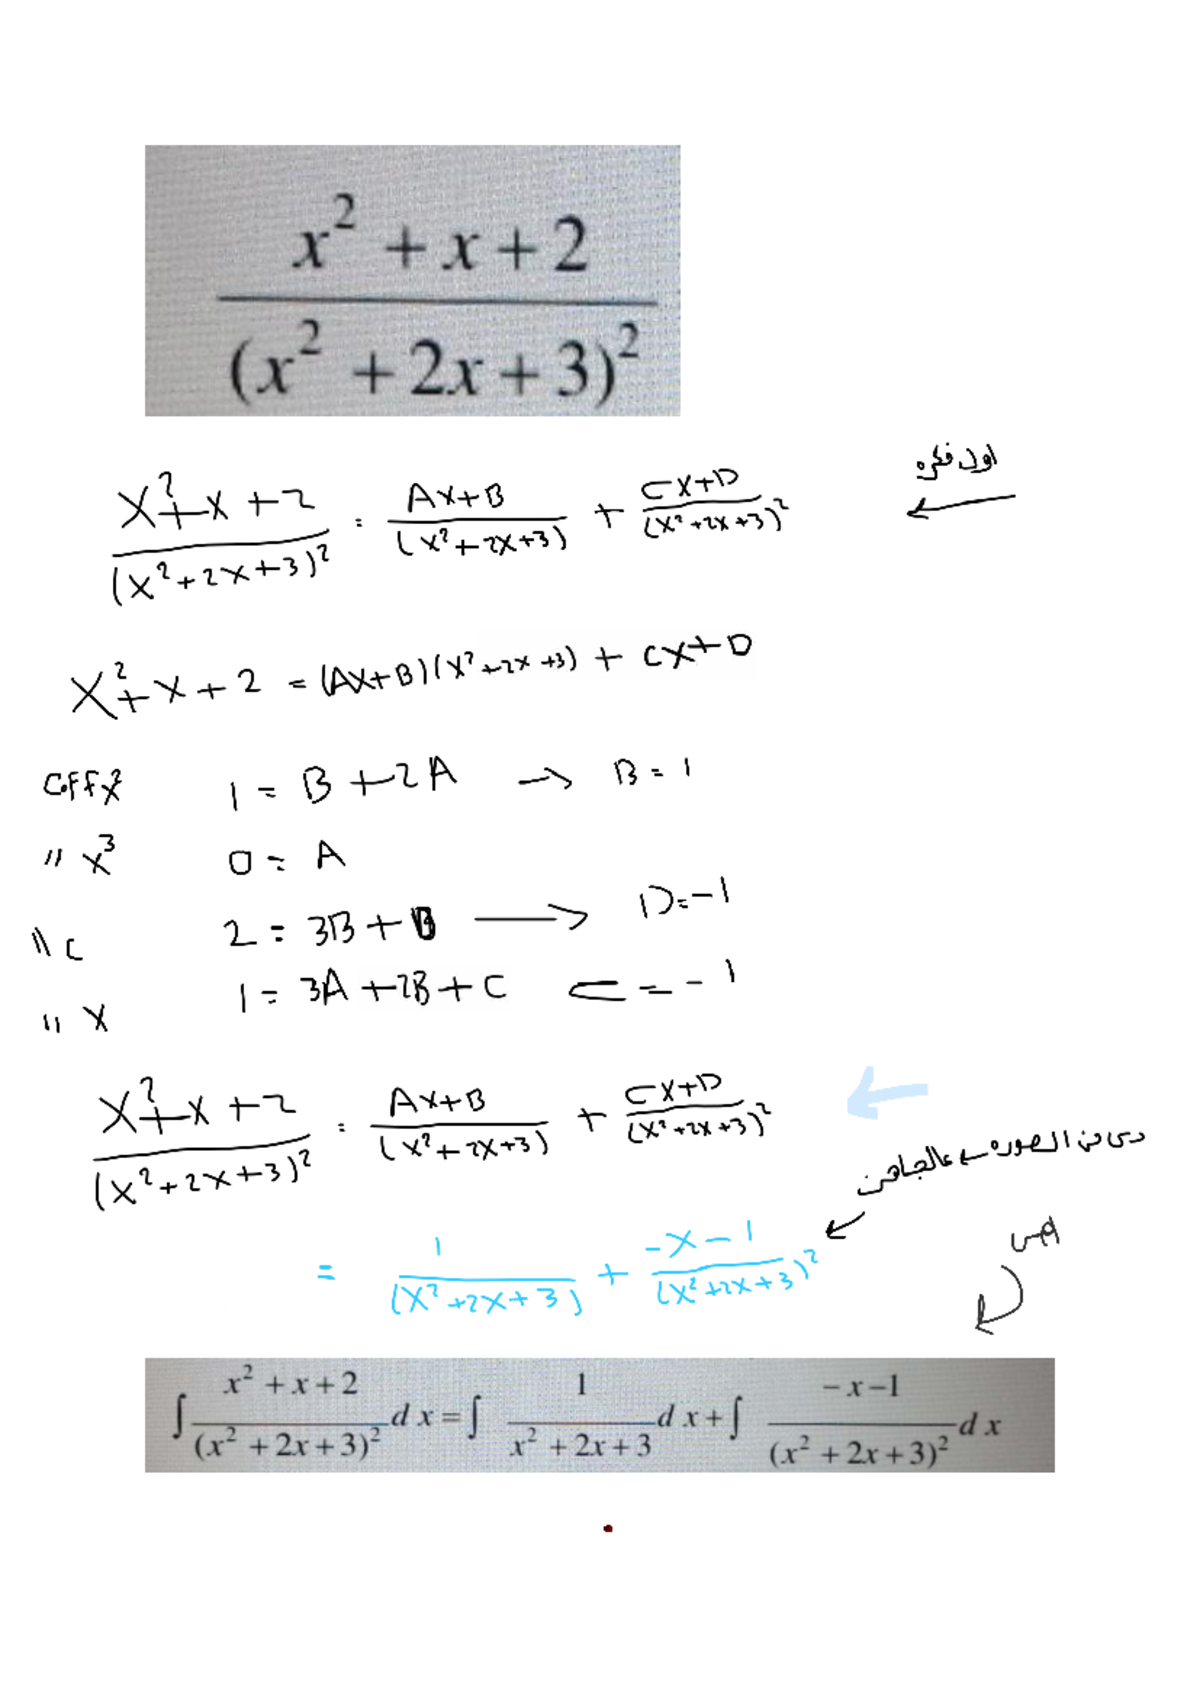 x² + x + 2
(x² + 2x + 3)²
اول فكره
x² + x + 2 / (x² + 2x + 3)² = Ax + B / (x² + 2x + 3) + Cx + D / (x² + 2x + 3)²
x² + x + 2 = (Ax + B)(x² + 2x + 3) + Cx + D
Coff x² 1 = B + 2A → B = 1
" x³ 0 = A
" c 2 = 3B + D → D = -1
" x 1 = 3A + 2B + C C = -1
x² + x + 2 / (x² + 2x + 3)² = Ax + B / (x² + 2x + 3) + Cx + D / (x² + 2x + 3)²
دى من الصوره ← عالجاهز
= 1 / (x² + 2x + 3) + -x - 1 / (x² + 2x + 3)²
∫ x² + x + 2 / (x² + 2x + 3)² d x = ∫ 1 / x² + 2x + 3 d x + ∫ -x - 1 / (x² + 2x + 3)² d x